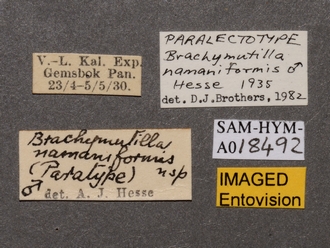 V.-L. Kal. Exp.
Gemsbok Pan.
23/4-5/5/30.
PARALECTOTYPE
Brachymutilla
namaniformis ♂
Hesse 1935
det. D.J. Brothers, 1982
Brachymutilla
namaniformis
(Paratype) n sp
♂
det. A. J. Hesse
SAM-HYM-
A018492
IMAGED
Entovision